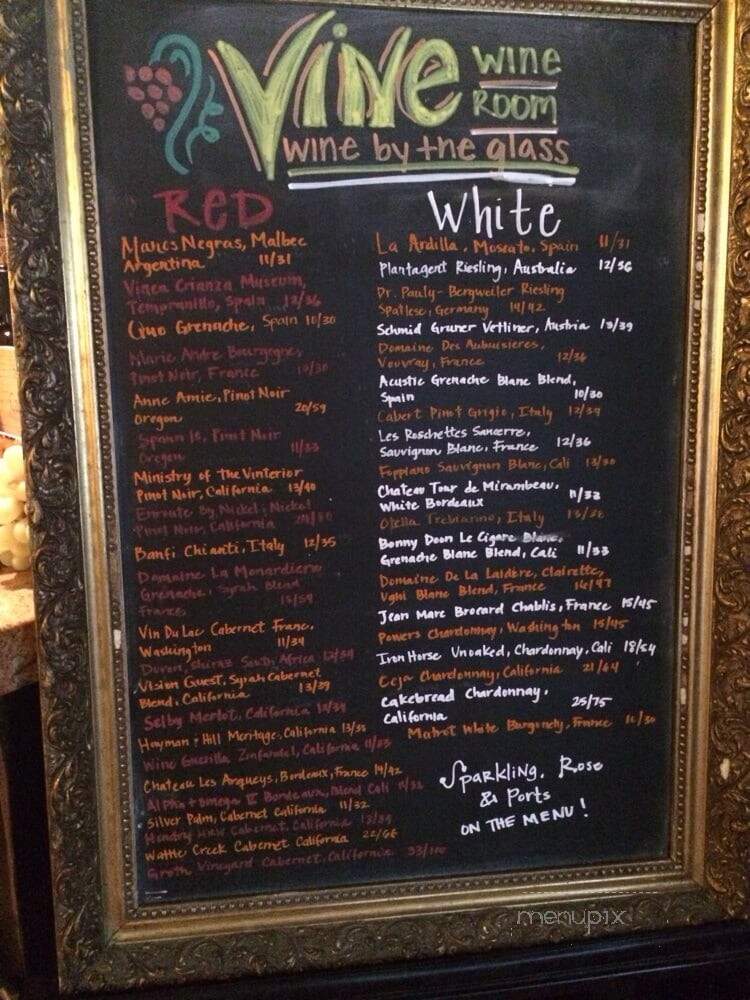 Vine wine
room
wine by the glass
Red
Mancs Negras, Malbec
Argentina 11/31
Vinea Crianza Museum,
Tempranillo, Spain 12/36
Quo Grenache, Spain 10/30
Marie Andre Bourgogne,
Pinot Noir, France 10/30
Anne Amie, Pinot Noir
Oregon 20/59
Pinot Noir
Oregon 11/33
Ministry of the Vinterior
Pinot Noir, California 13/40
Enroute By Nickel & Nickel
Pinot Noir, California
Banfi Chianti, Italy 12/35
Domaine La Monardiere
Grenache, Syrah Blend
France,
Vin Du Lac Cabernet Franc,
Washington 11/34
Shiraz South Africa 12/34
Vision Quest, Syrah, Cabernet
Blend, California 13/39
Selby Merlot, California 13/39
Heyman & Hill Meritage, California 13/38
Wine Guerilla Zinfandel, California 11/33
Chateau Les Arqueys, Bordeaux, France 14/42
Alpha & omega II Bordeaux, Blend Cali
Silver Palm, Cabernet California 11/32
Cabernet, California 13/39
Wattle Creek Cabernet California 22/66
Groth Vineyard Cabernet, California 33/100
White
La Ardilla, Moscato, Spain 11/31
Plantagent Riesling, Australia 12/36
Dr. Pauly-Bergweiler Riesling
Spatlese, Germany 14/42
Schmid Gruner Vetliner, Austria 13/39
Domaine Des Aubuisieres,
Vouvray, France 12/36
Acustic Grenache Blanc Blend,
Spain 10/30
Cabert Pinot Grigio, Italy 12/34
Les Roschettes Sancerre,
Sauvignon Blanc, France 12/36
Foppiano Sauvignon Blanc, Cali 13/30
Chateau Tour de Mirambeau,
White Bordeaux 11/33
Otella Trebianno, Italy 13/38
Bonny Doon Le Cigare Blanc,
Grenache Blanc Blend, Cali 11/33
Domaine De La Laidere, Clairette,
Ughi Blanc Blend, France 16/47
Jean Marc Brocard Chablis, France 15/45
Powers Chardonnay, Washington 15/45
Iron Horse Unoaked, Chardonnay, Cali 18/54
Ceja Chardonnay, California 21/64
Cakebread Chardonnay,
California 25/75
Matrot White Burgundy, France
Sparkling, Rose
& Ports
ON THE MENU!
menupix